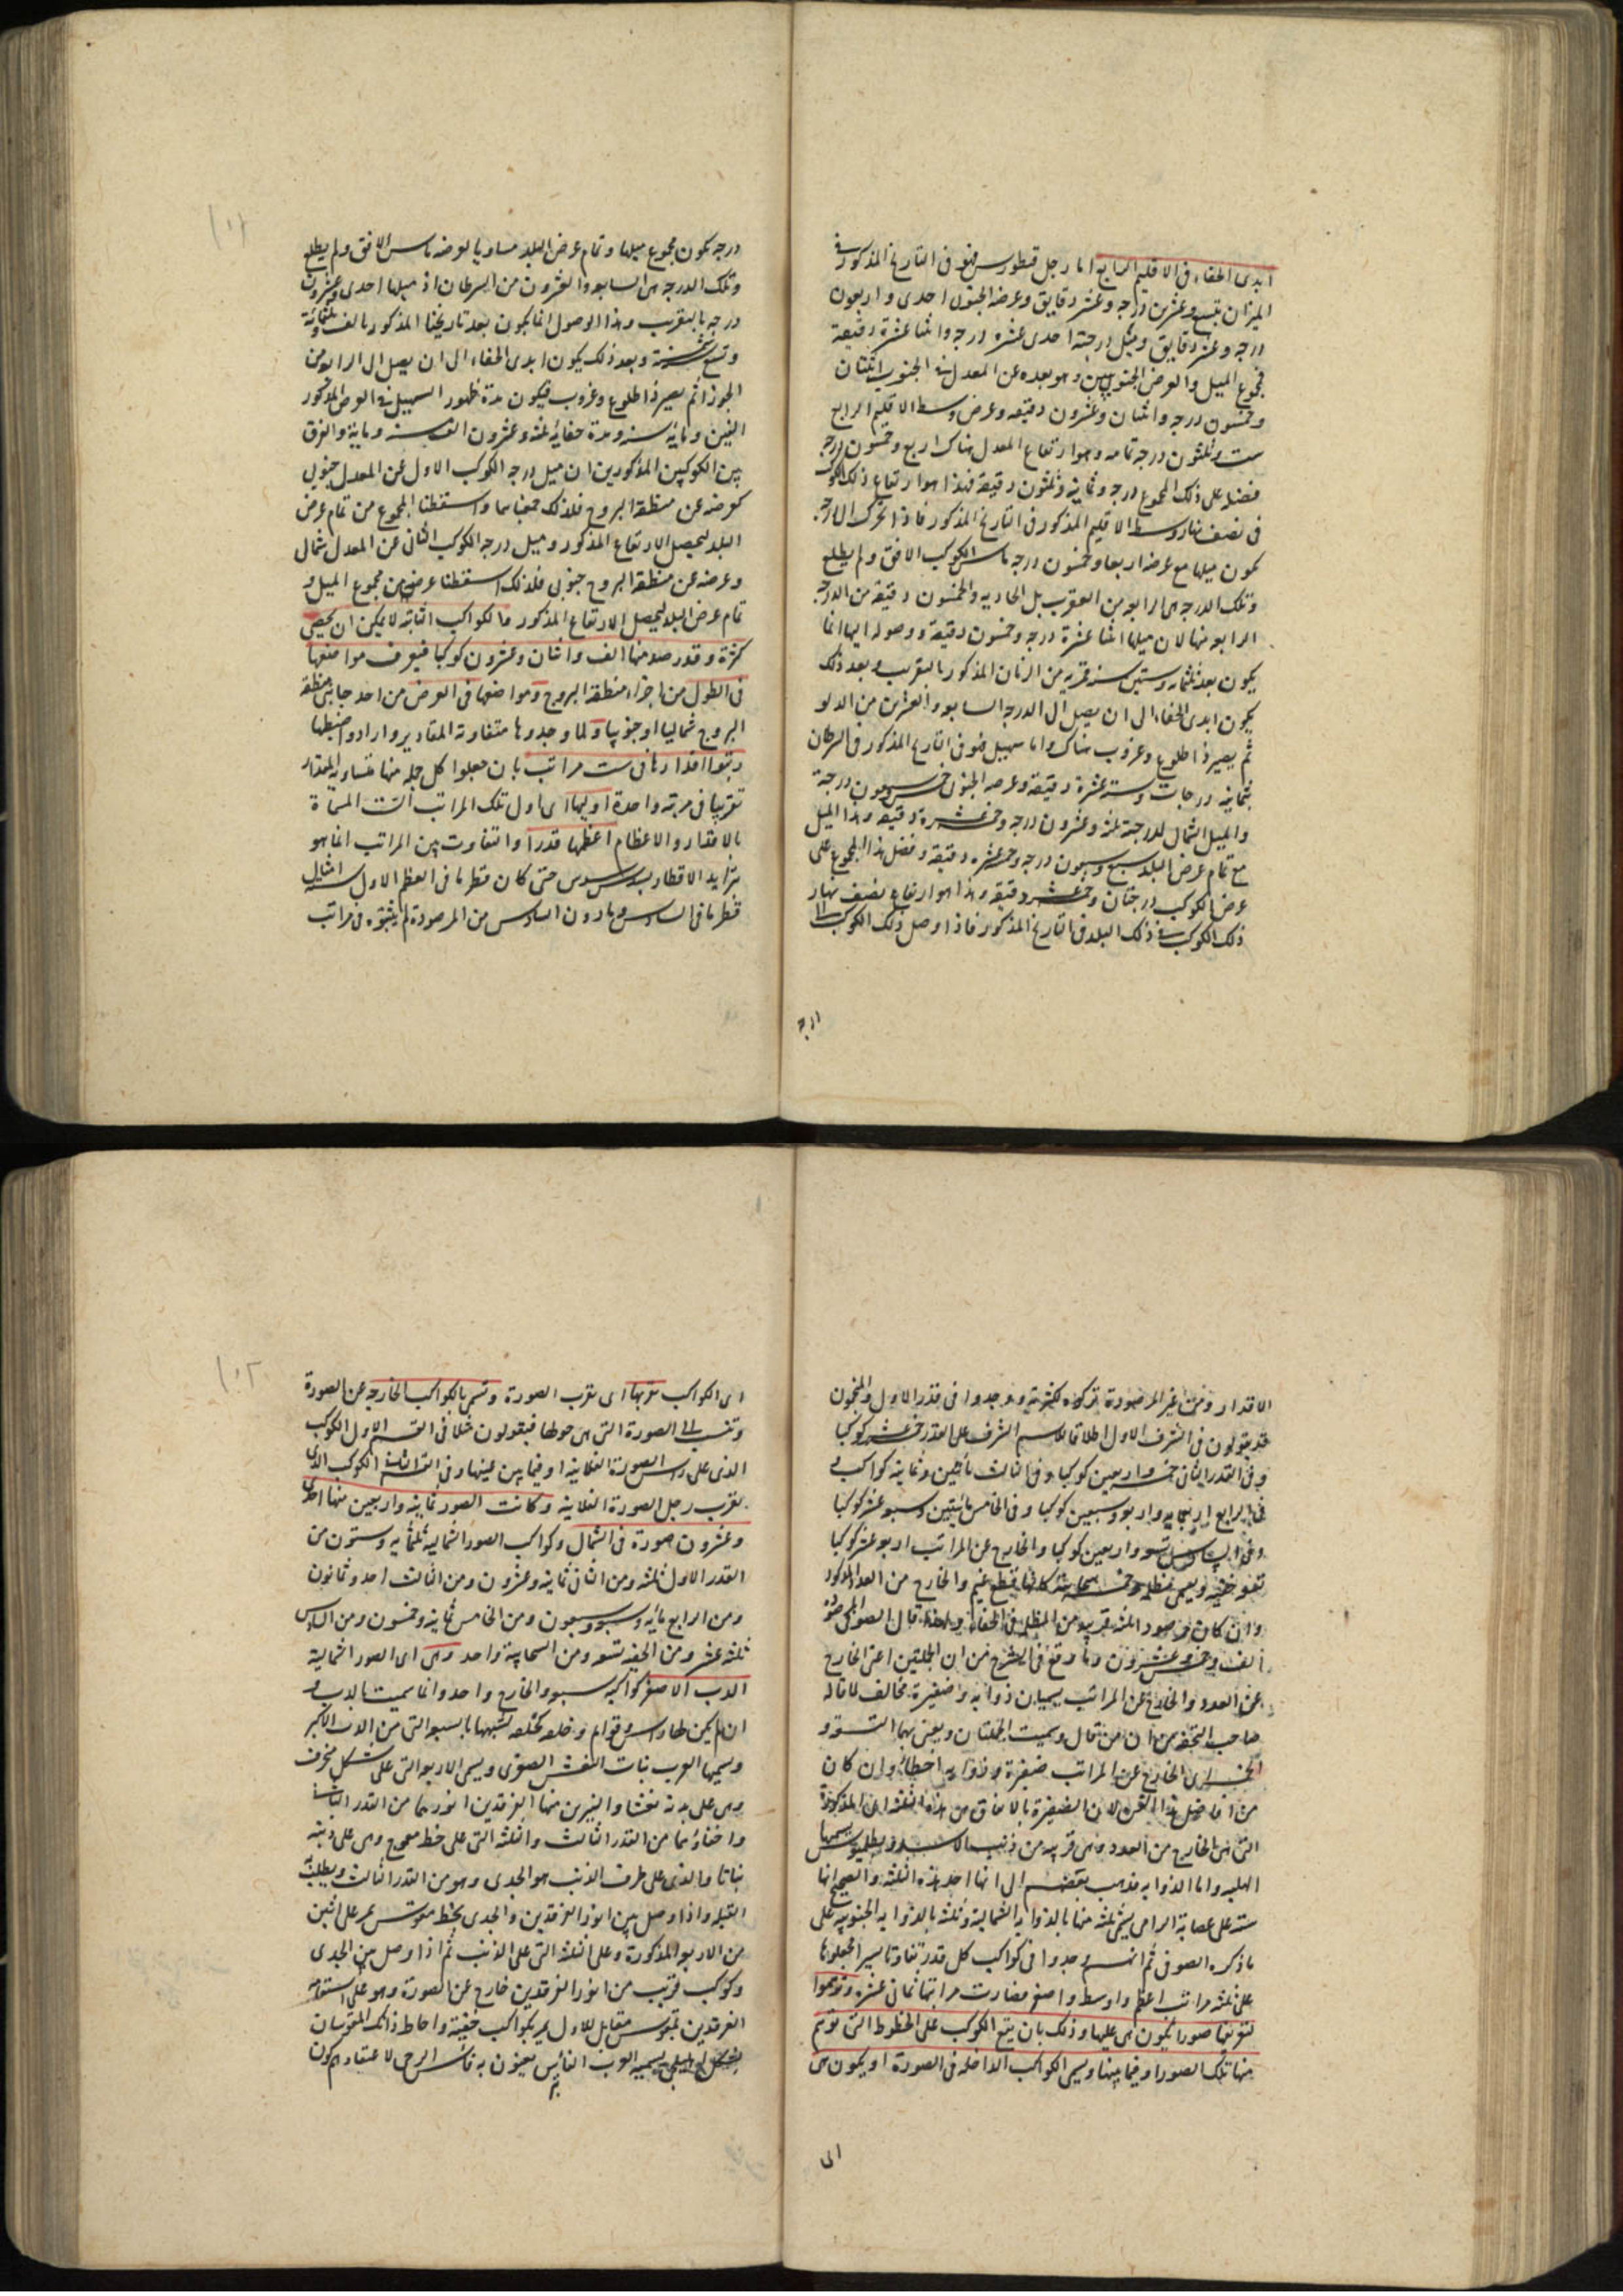 ابدى الخفاء فى الاقليم السابع اما رجل قنطورس فهو فى التاريخ المذكور فى
الميزان بتسع وعشرين درجه وعشر دقايق وعرضه الجنوبى احدى واربعون
درجه وعشر دقايق وميل درجته احدى عشره درجه واثنا عشرة دقيقة
فمجموع الميل والعرض الجنوبيين وهو بعده عن المعدل فى الجنوب اثنتان
وخمسون درجه واثنتان وعشرون دقيقه وعرض وسط الاقليم الرابع
ست وثلثون درجه تمامه وهو ارتفاع المعدل هناك اربع وخمسون درجه
فضله على ذلك المجموع درجه وثمانية وثلثون دقيقة فهذا هو ارتفاع ذلك الكوكب
فى نصف نهار وسط الاقليم المذكور فى التاريخ المذكور فاذا تحرك الى درجه
يكون ميلها مع عرضه اربعا وخمسون درجه ماس الكوكب الافق ولم يطلع
وتلك الدرجه هى الرابعه من العقرب بل الحاديه والخمسون دقيقة من الدرجه
الرابعه منها لان ميلها اثنا عشرة درجه وخمسون دقيقة ووصوله اليها انما
يكون بعد ثلثمايه وستين سنه قمريه من الزمان المذكور بالتقريب وبعد ذلك
يكون ابدى الخفاء الى ان يصل الى الدرجه السابعه والعشرين من الدلو
ثم يصير ذا طلوع وغروب هناك واما سهيل فهو فى التاريخ المذكور فى السرطان
بثمانيه درجات وستة عشرة دقيقة وعرضه الجنوبى خمس وسبعون درجة
والميل الشمالى لدرجته ثلثه وعشرون درجه وخمس عشرة دقيقه وهذا الميل
مع تمام عرض البلد سبع وسبعون درجه وخمس عشره دقيقة وفضل هذا المجموع على
عرض الكوكب درجتان وخمس عشره دقيقه وهذا هو ارتفاع نصف نهار
ذلك الكوكب فى ذلك البلد فى التاريخ المذكور فاذا وصل ذلك الكوكب الى
درجه
درجه يكون مجموع ميلها وتمام عرض البلد مساويا لعرضه ماس الافق ولم يطلع
وتلك الدرجه هى السابعه والعشرون من السرطان اذ ميلها احدى وعشرون
درجه بالتقريب وهذا الوصول انما يكون بعد تاريخنا المذكور بالف وثلثمائة
وتسع سنة وبعد ذلك يكون ابدى الخفاء الى ان يصل الى الرابعه من
الجوزا ثم يصير ذا طلوع وغروب فيكون مدة ظهور السهيل فى العرض المذكور
الفين ومايه سنه ومدة خفائه ثلثه وعشرون الف سنه وماية والفرق
بين الكوكبين المذكورين ان ميل درجه الكوكب الاول عن المعدل جنوبى
كعرضه عن منطقة البروج فلذلك جمعناهما واسقطنا المجموع من تمام عرض
البلد ليحصل الارتفاع المذكور وميل درجه الكوكب الثانى عن المعدل شمالى
وعرضه عن منطقة البروج جنوبى فلذلك اسقطنا عرضه من مجموع الميل و
تمام عرض البلد ليحصل الارتفاع المذكور والكواكب الثابته لا يمكن ان يحصى
كثرة وقد رصد منها الف واثنان وعشرون كوكبا فيعرف مواضعها
فى الطول من اجزاء منطقة البروج ومواضعها فى العرض من احد جانبى منطقة
البروج شماليا او جنوبيا ولما وجدوها متفاوتة المقادير وارادوا ضبطها
رتبوا اقدارها فى ست مراتب بان جعلوا كل جمله منها متساوية المقدار
تقريبا فى مرتبه واحدة اوليها اى اول تلك المراتب الست المسماة
بالاقدار والاعظام اعظمها قدرا والتفاوت بين المراتب انما هو
بتزايد الاقطار بسدس سدس حتى كان قطر ما فى العظم الاول ستة امثال
قطر ما فى السادس وما دون السادس من المرصودة لم يثبتوه فى مراتب
الاقدار ومن غير المرصودة تركوه لكثرته ووجدوا فى قدر الاول والمنجمون
قد يقولون فى الشرف الاول اطلاقا لاسم الشرف على القدر خمسة عشر كوكبا
وفى القدر الثانى خمسه واربعين كوكبا وفى الثالث مأتين وثمانيه كواكب و
فى الرابع اربعمايه واربعه وسبعين كوكبا وفى الخامس مائتين وسبعه عشر كوكبا
وفى السادس تسعه واربعين كوكبا والخارج عن المراتب اربعه عشر كوكبا
تسعه خفيه ويسمى مظلمه وخمسه سحابيه كانها قطع غيم والخارج من العدد المذكور
وان كان مرصودا ثلثه قريبه من المظلمه فى الخفاء ولهذا قال الصوفى المرصودة
الف وخمسه وعشرون وما وقع فى الشرح من ان الجملتين اعنى الخارج
عن العدد والخارج عن المراتب يسميان ذوابه وضفيرة مخالف لما قاله
صاحب التحفه من ان من قال وسميت الجملتان ويعنى بهما التسعه و
الخمسه اى الخارج عن المراتب ضفيرة وذوابه اخطاء وان كان
من افاضل هذا الفن لان الضفيرة بالاتفاق من هذه الثلثه اى المذكورة
التى هى الخارج من العدد وهى قريبه من ذنب الاسد وبطلميوس يسميها
الهلبه واما الذوابه فذهب بعضهم الى انها احد هذه الثلثه والصحيح انها
ستة على عصابة الرامى يسمى ثلثه منها بالذوابه الشمالية وثلثه بالذوابه الجنوبيه على
ما ذكره الصوفى ثم انهم وجدوا فى كواكب كل قدر تفاوتا يسيرا فجعلوها
على ثلثه مراتب اعظم واوسط واصغر فصارت مراتبها ثمانى عشره وتوهموا
لتعريفها صورا يكون هى عليها وذلك بان يقع الكوكب على الخطوط التى توهم
منها تلك الصور او فيما بينها ويسمى الكواكب الداخله فى الصورة او يكون هى
اى
اى الكواكب بقربها اى بقرب الصورة وتسمى بالكواكب الخارجه عن الصورة
وتنسب الى الصورة التى هى حولها فيقولون مثلا فى القسم الاول الكوكب
الذى على راس الصورة الفلانيه او فيما بين عينيها وفى القسم الثانى الكوكب الذى
بقرب رجل الصورة الفلانيه وكانت الصور ثمانيه واربعين منها احدى
وعشرون صورة فى الشمال وكواكب الصور الشماليه ثلثمائه وستون من
القدر الاول ثلثه ومن الثانى ثمانيه وعشرون ومن الثالث احد وثمانون
ومن الرابع مائه وسبعه وسبعون ومن الخامس ثمانيه وخمسون ومن السادس
ثلثه عشر ومن الخفيه تسعه ومن السحابية واحد وهى اى الصور الشمالية
الدب الاصغر كواكبه سبعه والخارج واحد وانما سميت بالدب و
ان لم يكن لها راس وقوايم وخلقه كخلقه لشبهها بالسبعه التى من الدب الاكبر
ويسميها العرب بنات النعش الصغرى ويسمى الاربعه التى على شكل منحرف
وهى على بدنه نعشا والنيرين منها الفرقدين انورهما من القدر الثانى
واخفاءهما من القدر الثالث والثلثه التى على خط معوج وهى على ذنبه
بناتا والذى على طرف الذنب هو الجدى وهو من القدر الثالث ويطلب به
القبلة واذا وصل بين انور الفرقدين والجدى بخط مقوس يمر على اثنين
من الاربعه المذكورة وعلى الثلثه التى على الذنب ثم اذا وصل بين الجدى
وكوكب قريب من انور الفرقدين خارج عن الصورة وهو على استقامه
الفرقدين بتقوس مقابل للاول يمر بكواكب خفيه واحاط ذانك القوسان
بشكل اهليلجى يسميه العرب الفاس يعنون به فأس الرحى لاعتقادهم كون